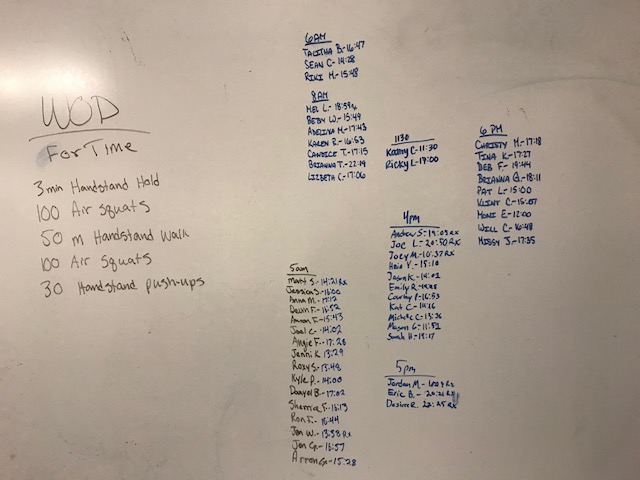 WOD
For Time
3 min Handstand Hold
100 Air squats
50 m Handstand Walk
100 Air Squats
30 Handstand push-ups
6AM
TALITHA B.-16:47
SEAN C-14:28
RIKI M.-15:48
8AM
MEL L.- 18:59
BETSY W.- 15:49
ADELINA M-17:43
KAREN R.- 16:53
CANDICE T.- 17:15
BRIANNA T.- 22:19
LIZBETH C-17:06
5am
Marc S.- 14:21 RX
Jessica S.-16:00
Anna M.- 17:12
Dawn F.- 16:52
Aaron F.-15:43
Joel C.- 14:02
Angie F.- 17:28
Jenni K 13:29
Roxy S.- 13:48
Kyle P.- 14:00
Danyel B.- 17:02
Sherrie F.-16:13
Ron F.- 16:44
Jon W.- 13:58 RX
Jen G.- 16:57
Arron G.-15:28
1130
Kathy C-11:30
Ricky L-17:00
4pm
Andrew S-19:03 RX
Joe L-20:50 RX
Joey M-10:37 RX
15:10
Jason K.-14:02
Emily R.
Courtney P-16:53
Kat C-
Michele C-13:26
Mason G-11:51
Sarah H-19:17
5pm
Jordan M- RX
Eric B.- RX
Desiree R. 22:25 RX
6 PM
CHRISTY M.-17:18
TINA K-17:27
DEB F.- 19:44
BRIANNA G.-18:11
PAT L-15:00
KLINT C-15:07
MONI E-12:00
WILL C-16:48
MISSY J.-17:35